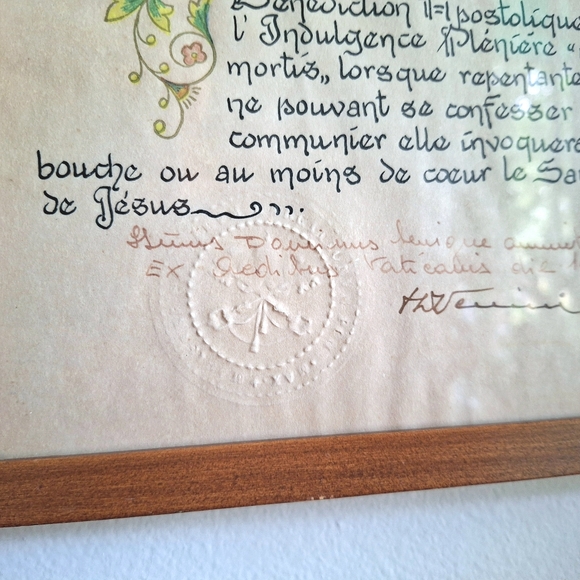 Bénédiction Apostolique
l'Indulgence Plénière «
mortis„ lorsque repentante
ne pouvant se confesser
communier elle invoquera
bouche ou au moins de cœur le Sa
de Jésus
Dominus
EX Aedibus Vaticanis die